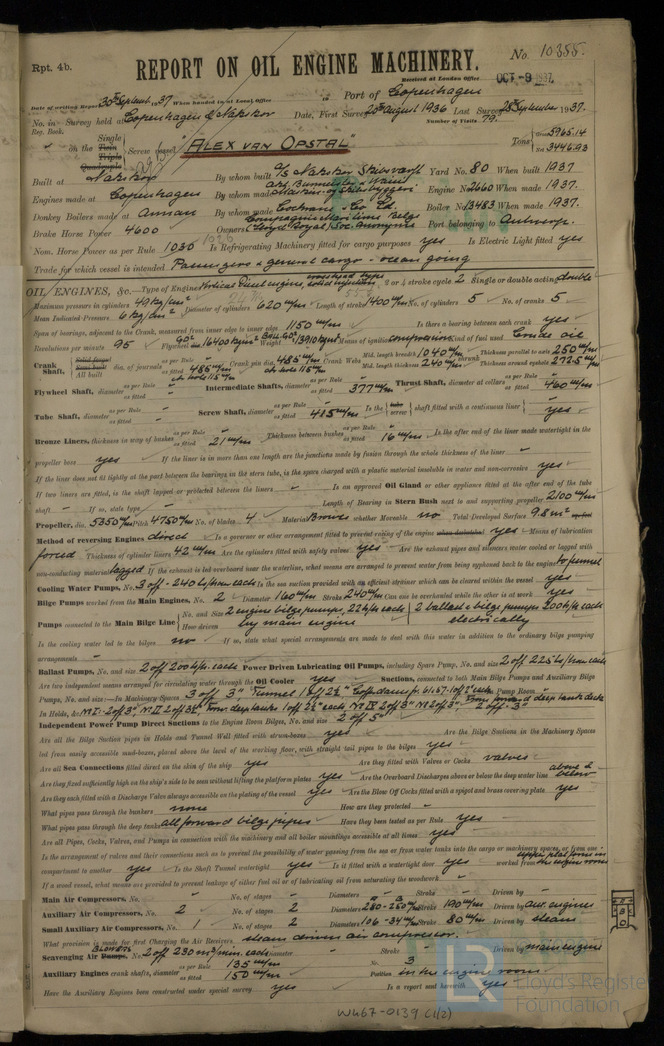 Rpt. 4b.
REPORT ON OIL ENGINE MACHINERY.
No. 10355.
Received at London Office
OCT -9 1937
Date of writing Report 30th Septemb. 1937 When handed in at Local Office
Port of Copenhagen
No. in Survey held at Copenhagen & Nakskov
Date, First Survey 20th August 1936 Last Survey 28th September 1937.
Reg. Book.
Number of Visits 79.
on the Single Twin Triple Quadruple Screw vessel
"ALEX VAN OPSTAL"
Tons Gross 5965.14
Net 3446.93
Built at Nakskov
By whom built A/S Nakskov Skibsværft
Yard No. 80 When built 1937
Engines made at Copenhagen
By whom made Akt. Burmeister & Wain's Maskin- og Skibsbyggeri
Engine No. 2660 When made 1937.
Donkey Boilers made at Annan
By whom made Cochran & Co. Ld.
Boiler No. 13483 When made 1937.
Brake Horse Power 4600
Owners Compagnie Maritime Belge (Lloyd Royal) Soc. Anonyme
Port belonging to Antwerp.
Nom. Horse Power as per Rule 1030
Is Refrigerating Machinery fitted for cargo purposes yes
Is Electric Light fitted yes
Trade for which vessel is intended Passengers & general cargo - ocean going
OIL ENGINES, &c. Type of Engines Vertical Diesel engines, crosshead type solid injection 2 or 4 stroke cycle 2 Single or double acting double
Maximum pressure in cylinders 49 kg/cm² Diameter of cylinders 620 m/m Length of stroke 1400 m/m No. of cylinders 5 No. of cranks 5
Mean Indicated Pressure 6 kg/cm²
Span of bearings, adjacent to the Crank, measured from inner edge to inner edge 1150 m/m Is there a bearing between each crank yes
Revolutions per minute 95 Flywheel Weight Means of ignition compression Kind of fuel used Crude oil
Crank Shaft, Solid forged Semi built All built dia. of journals as per Rule as fitted 485 m/m Crank pin dia. 485 m/m Crank Webs Mid. length breadth 1040 m/m Mid. length thickness 240 m/m Thickness parallel to axis 250 m/m Thickness around eyehole 272.5 m/m
Flywheel Shaft, diameter as per Rule as fitted - Intermediate Shafts, diameter as per Rule as fitted 377 m/m Thrust Shaft, diameter at collars as per Rule as fitted 460 m/m
Tube Shaft, diameter as per Rule as fitted - Screw Shaft, diameter as per Rule as fitted 415 m/m Is the tube screw shaft fitted with a continuous liner yes
Bronze Liners, thickness in way of bushes as per Rule as fitted 21 m/m Thickness between bushes as per Rule as fitted 16 m/m Is the after end of the liner made watertight in the
propeller boss yes If the liner is in more than one length are the junctions made by fusion through the whole thickness of the liner -
If the liner does not fit tightly at the part between the bearings in the stern tube, is the space charged with a plastic material insoluble in water and non-corrosive yes
If two liners are fitted, is the shaft lapped or protected between the liners - Is an approved Oil Gland or other appliance fitted at the after end of the tube
shaft - If so, state type - Length of Bearing in Stern Bush next to and supporting propeller 2100 m/m
Propeller, dia. 5350 m/m Pitch 4750 m/m No. of blades 4 Material Bronze whether Moveable no Total Developed Surface 9.8 m² sq. feet
Method of reversing Engines direct Is a governor or other arrangement fitted to prevent racing of the engine when declutched yes Means of lubrication
forced Thickness of cylinder liners 42 m/m Are the cylinders fitted with safety valves yes Are the exhaust pipes and silencers water cooled or lagged with
non-conducting material lagged If the exhaust is led overboard near the waterline, what means are arranged to prevent water being syphoned back to the engine to funnel
Cooling Water Pumps, No. 3 off - 240 ts/hour each Is the sea suction provided with an efficient strainer which can be cleared within the vessel yes
Bilge Pumps worked from the Main Engines, No. 2 Diameter 160 m/m Stroke 240 m/m Can one be overhauled while the other is at work yes
Pumps connected to the Main Bilge Line No. and Size 2 engine bilge pumps, 22 t/h each 2 ballast & bilge pumps 200 t/h each
How driven by main engine electrically
Is the cooling water led to the bilges no If so, state what special arrangements are made to deal with this water in addition to the ordinary bilge pumping
arrangements -
Ballast Pumps, No. and size 2 off 200 t/h each Power Driven Lubricating Oil Pumps, including Spare Pump, No. and size 2 off 225 ts/hour each
Are two independent means arranged for circulating water through the Oil Cooler yes Suctions, connected to both Main Bilge Pumps and Auxiliary Bilge
Pumps, No. and size:—In Machinery Spaces 3 off 3" Tunnel 1 off 2½" In Pump Room
In Holds, &c. No I - 2 off 3", No II 2 off 3½" From deep tanks 1 off 2½" each, No IV 2 off 3" No V 2 off 3"
Independent Power Pump Direct Suctions to the Engine Room Bilges, No. and size 2 off 5"
Are all the Bilge Suction pipes in Holds and Tunnel Well fitted with strum-boxes yes Are the Bilge Suctions in the Machinery Spaces
led from easily accessible mud-boxes, placed above the level of the working floor, with straight tail pipes to the bilges yes
Are all Sea Connections fitted direct on the skin of the ship yes Are they fitted with Valves or Cocks valves
Are they fixed sufficiently high on the ship's side to be seen without lifting the platform plates yes Are the Overboard Discharges above or below the deep water line above & below
Are they each fitted with a Discharge Valve always accessible on the plating of the vessel yes Are the Blow Off Cocks fitted with a spigot and brass covering plate yes
What pipes pass through the bunkers none How are they protected -
What pipes pass through the deep tanks all forward bilge pipes Have they been tested as per Rule yes
Are all Pipes, Cocks, Valves, and Pumps in connection with the machinery and all boiler mountings accessible at all times yes
Is the arrangement of valves and their connections such as to prevent the possibility of water passing from the sea or from water tanks into the cargo or machinery spaces, or from one
compartment to another yes Is the Shaft Tunnel watertight yes Is it fitted with a watertight door yes worked from upper platform in the engine room
If a wood vessel, what means are provided to prevent leakage of either fuel oil or of lubricating oil from saturating the woodwork -
Main Air Compressors, No. - No. of stages - Diameters - Stroke - Driven by -
Auxiliary Air Compressors, No. 2 No. of stages 2 Diameters 280-250 m/m Stroke 190 m/m Driven by aux. engines
Small Auxiliary Air Compressors, No. 1 No. of stages 2 Diameters 106-34 m/m Stroke 80 m/m Driven by steam
What provision is made for first Charging the Air Receivers steam driven air compressor.
Scavenging Air Pumps, BLOWERS No. 2 off 230 m³/min. each diameter - Stroke - Driven by main engine
Auxiliary Engines crank shafts, diameter as per Rule 135 m/m as fitted 150 m/m No. 3 Position in the engine room
Have the Auxiliary Engines been constructed under special survey yes Is a report sent herewith yes
LR
Lloyd's Register
Foundation
W467-0139 (1/2)